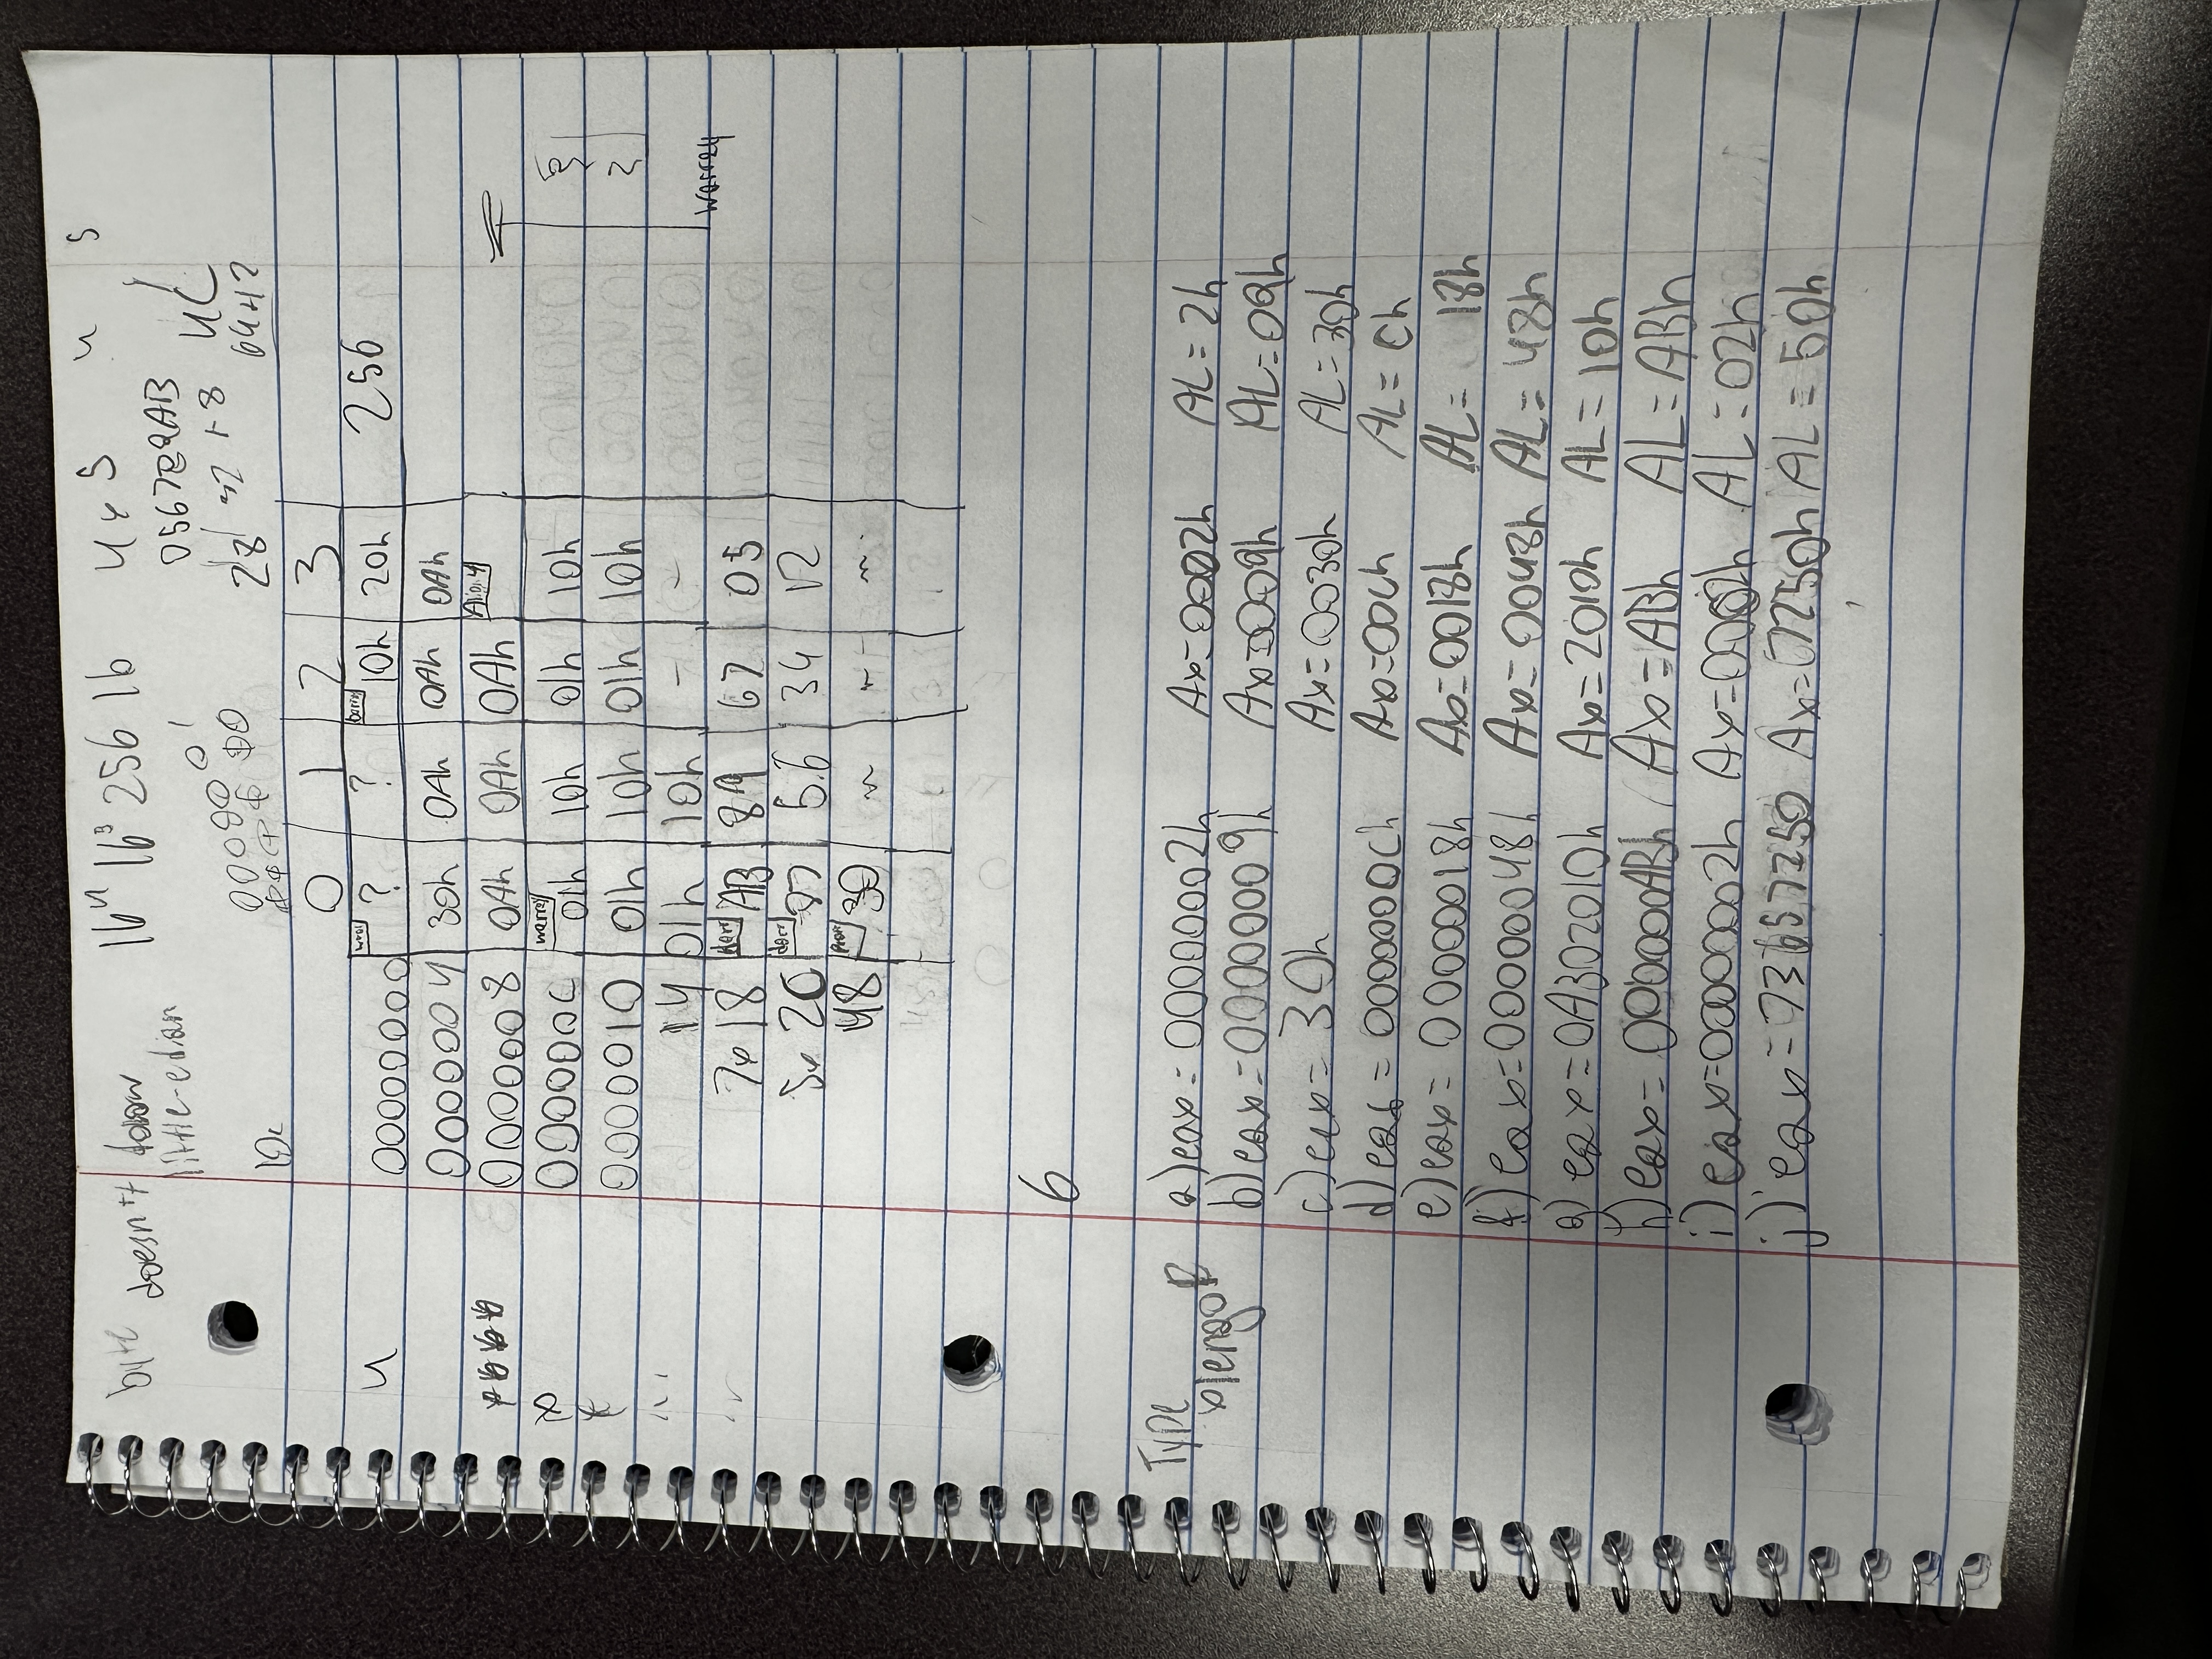 byte doesn't follow little-edian
16⁴ 16³ 256 16
4 x 5
4
5
056789AB
28
32 + 8
4C
64+12
0 1 2 3
4 00000000 ? ? barray 10h 20h 256
00000004 30h 0Ah 0Ah 0Ah
0000008 0Ah 0Ah 0Ah Align 4
000000C warray 01h 10h 01h 10h
0000010 01h 10h 01h 10h
14 01h 10h - -
warray
7x 18 darr AB 89 67 05
5x 2C darr 56 34 12
48 parr 30 ~ ~ ~
6
Type
a) eax = 00000002h Ax=0002h AL = 2h
b) eax = 00000009h Ax=0009h AL=09h
c) eax = 30h Ax=0030h AL = 30h
d) eax = 0000000Ch Ax=00Ch AL = Ch
e) eax = 00000018h Ax=0018h AL = 18h
f) eax=00000048h Ax=0048h AL = 48h
g) eax=0A302010h Ax=2010h AL = 10h
h) eax= 000000ABh Ax=ABh AL=ABh
i) eax=00000002h Ax=0002h AL=02h
j) eax=73657250 Ax=7250h AL = 50h